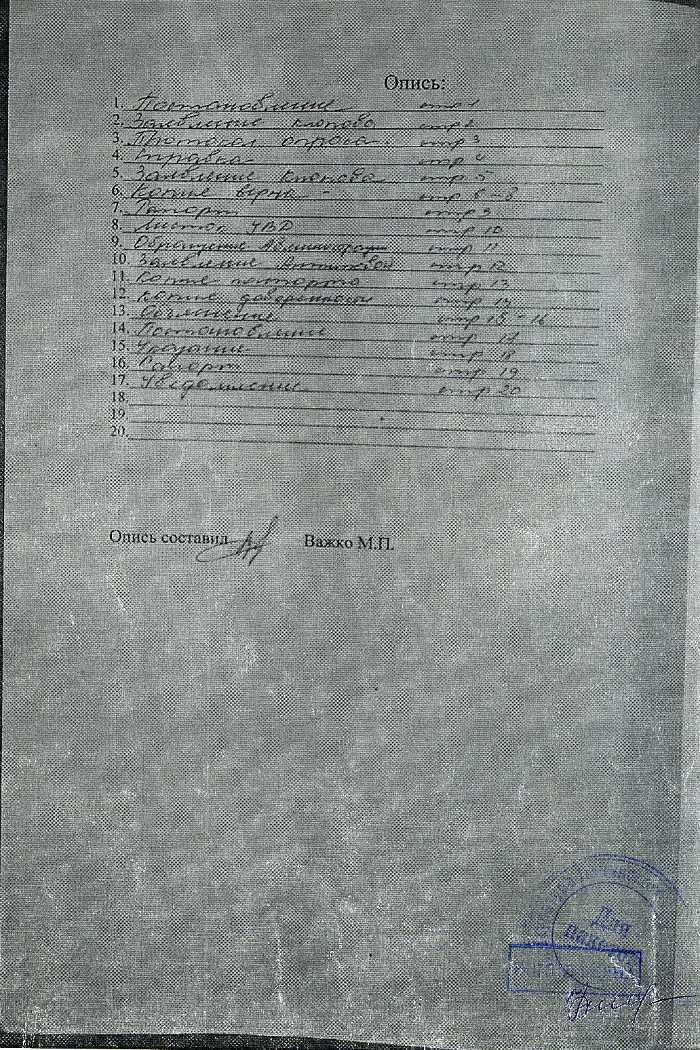 Опись:
1. Постановление стр 1
2. Заявление Клопова стр 2
3. Протокол опроса стр 3
4. Справка стр 4
5. Заявление Клопова стр 5
6. Копие верна - стр 6-8
7. Рапорт стр 9
8. Листок УВД стр 10
9. Обращение Администрации стр 11
10. Заявление стр 12
11. Копие паспорта стр 13
12. Копие доверенности стр 14
13. Объяснение стр 15-16
14. Постановление стр 17
15. Указание стр 18
16. Рапорт стр 19
17. Уведомление стр 20
18.
19.
20.
Опись составил Важко М.П.
Для